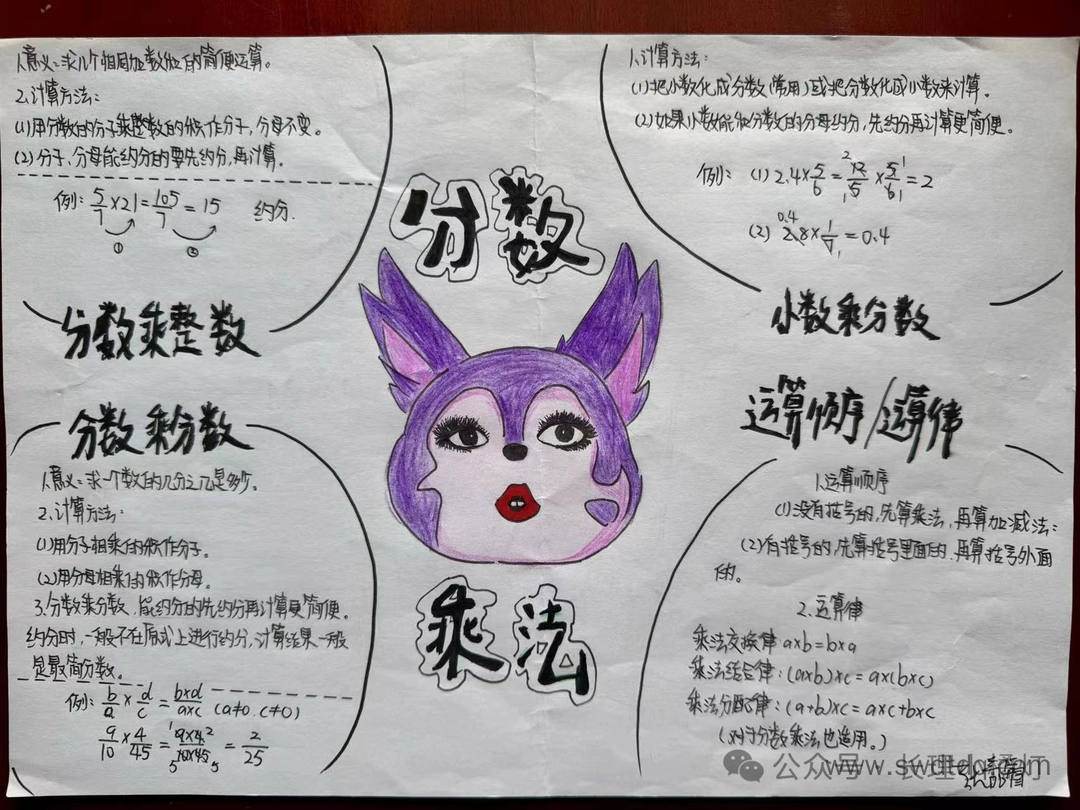 1.意义:求几个相同加数和的简便运算。
2.计算方法:
(1)用分数的分子乘整数的积作分子,分母不变。
(2)分子、分母能约分的要先约分,再计算。
例: 5/7×21=105/7=15 约分.
① ②
分数乘整数
分数
乘法
1.计算方法:
(1)把小数化成分数(常用)或把分数化成小数来计算。
(2)如果小数能和分数的分母约分,先约分再计算更简便。
例: (1) 2.4×5/6=12/5×5/6=2
(2) 2.8×1/7=0.4
小数乘分数
分数乘分数
1.意义:求一个数的几分之几是多少。
2.计算方法:
(1)用分子相乘的积作分子。
(2)用分母相乘的积作分母。
3.分数乘分数,能约分的先约分再计算更简便。
约分时,一般不在原式上进行约分,计算结果一般
是最简分数。
例: b/a×d/c=b×d/a×c (a≠0 c≠0)
9/10×4/45=9×4/10×45=2/25
运算顺序/运算律
1.运算顺序
(1)没有括号的,先算乘法,再算加减法:
(2)有括号的,先算括号里面的,再算括号外面
的。
2.运算律
乘法交换律 a×b=b×a
乘法结合律:(a×b)×c=a×(b×c)
乘法分配律:(a+b)×c=a×c+b×c
(对于分数乘法也适用。)
公众号